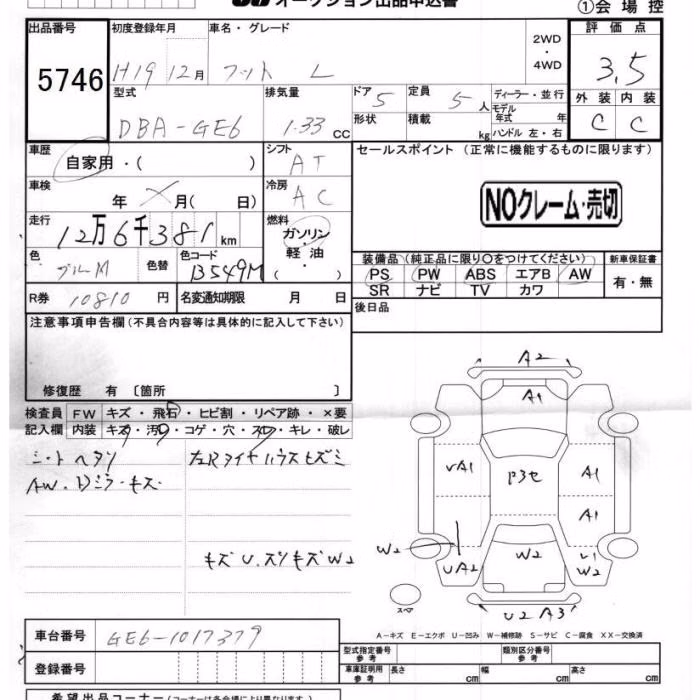 オークション出品申込書
①会場控
出品番号 初度登録年月 車名・グレード 2WD・4WD 評価点
5746 H19 12月 フィット L 3.5
型式 排気量 ドア 5 定員 5人 ディーラー・並行
モデル年式 年
外装 内装
DBA-GE6 1.33cc 形状 積載 kg ハンドル 左・右 C C
車歴 自家用・( ) シフト AT セールスポイント (正常に機能するものに限ります)
車検 年 月( 日) 冷房 AC
NOクレーム・売切
走行 12万6千381km 燃料 ガソリン・軽油・( )
色 ブルM 色替 色コード B549M
装備品(純正品に限り○をつけてください) 新車保証書
PS PW ABS エアB AW 有・無
SR ナビ TV カワ
R券 10810円 名変通知期限 月 日 後日品
注意事項申告欄(不具合内容等は具体的に記入して下さい)
修復歴 有〔箇所 〕
検査員 FW キズ・飛石・ヒビ割・リペア跡・×要
記入欄 内装 キズ・汚・コゲ・穴・スレ・キレ・破レ
シートヘタリ
AW.Dミラーキズ
キズU.スリキズW2
A2
A1
A1 A1
A1
W2 W2 W2
UA2
スペア
U2 A3
A-キズ E-エクボ U-凹み W-補修跡 S-サビ C-腐食 XX-交換済
車台番号 GE6-1017379
型式指定番号 参考 類別区分番号 参考
登録番号 車庫証明用 参考 長さ cm 幅 cm 高さ cm
希望出品コーナー(コーナーは各会場により異なります。)